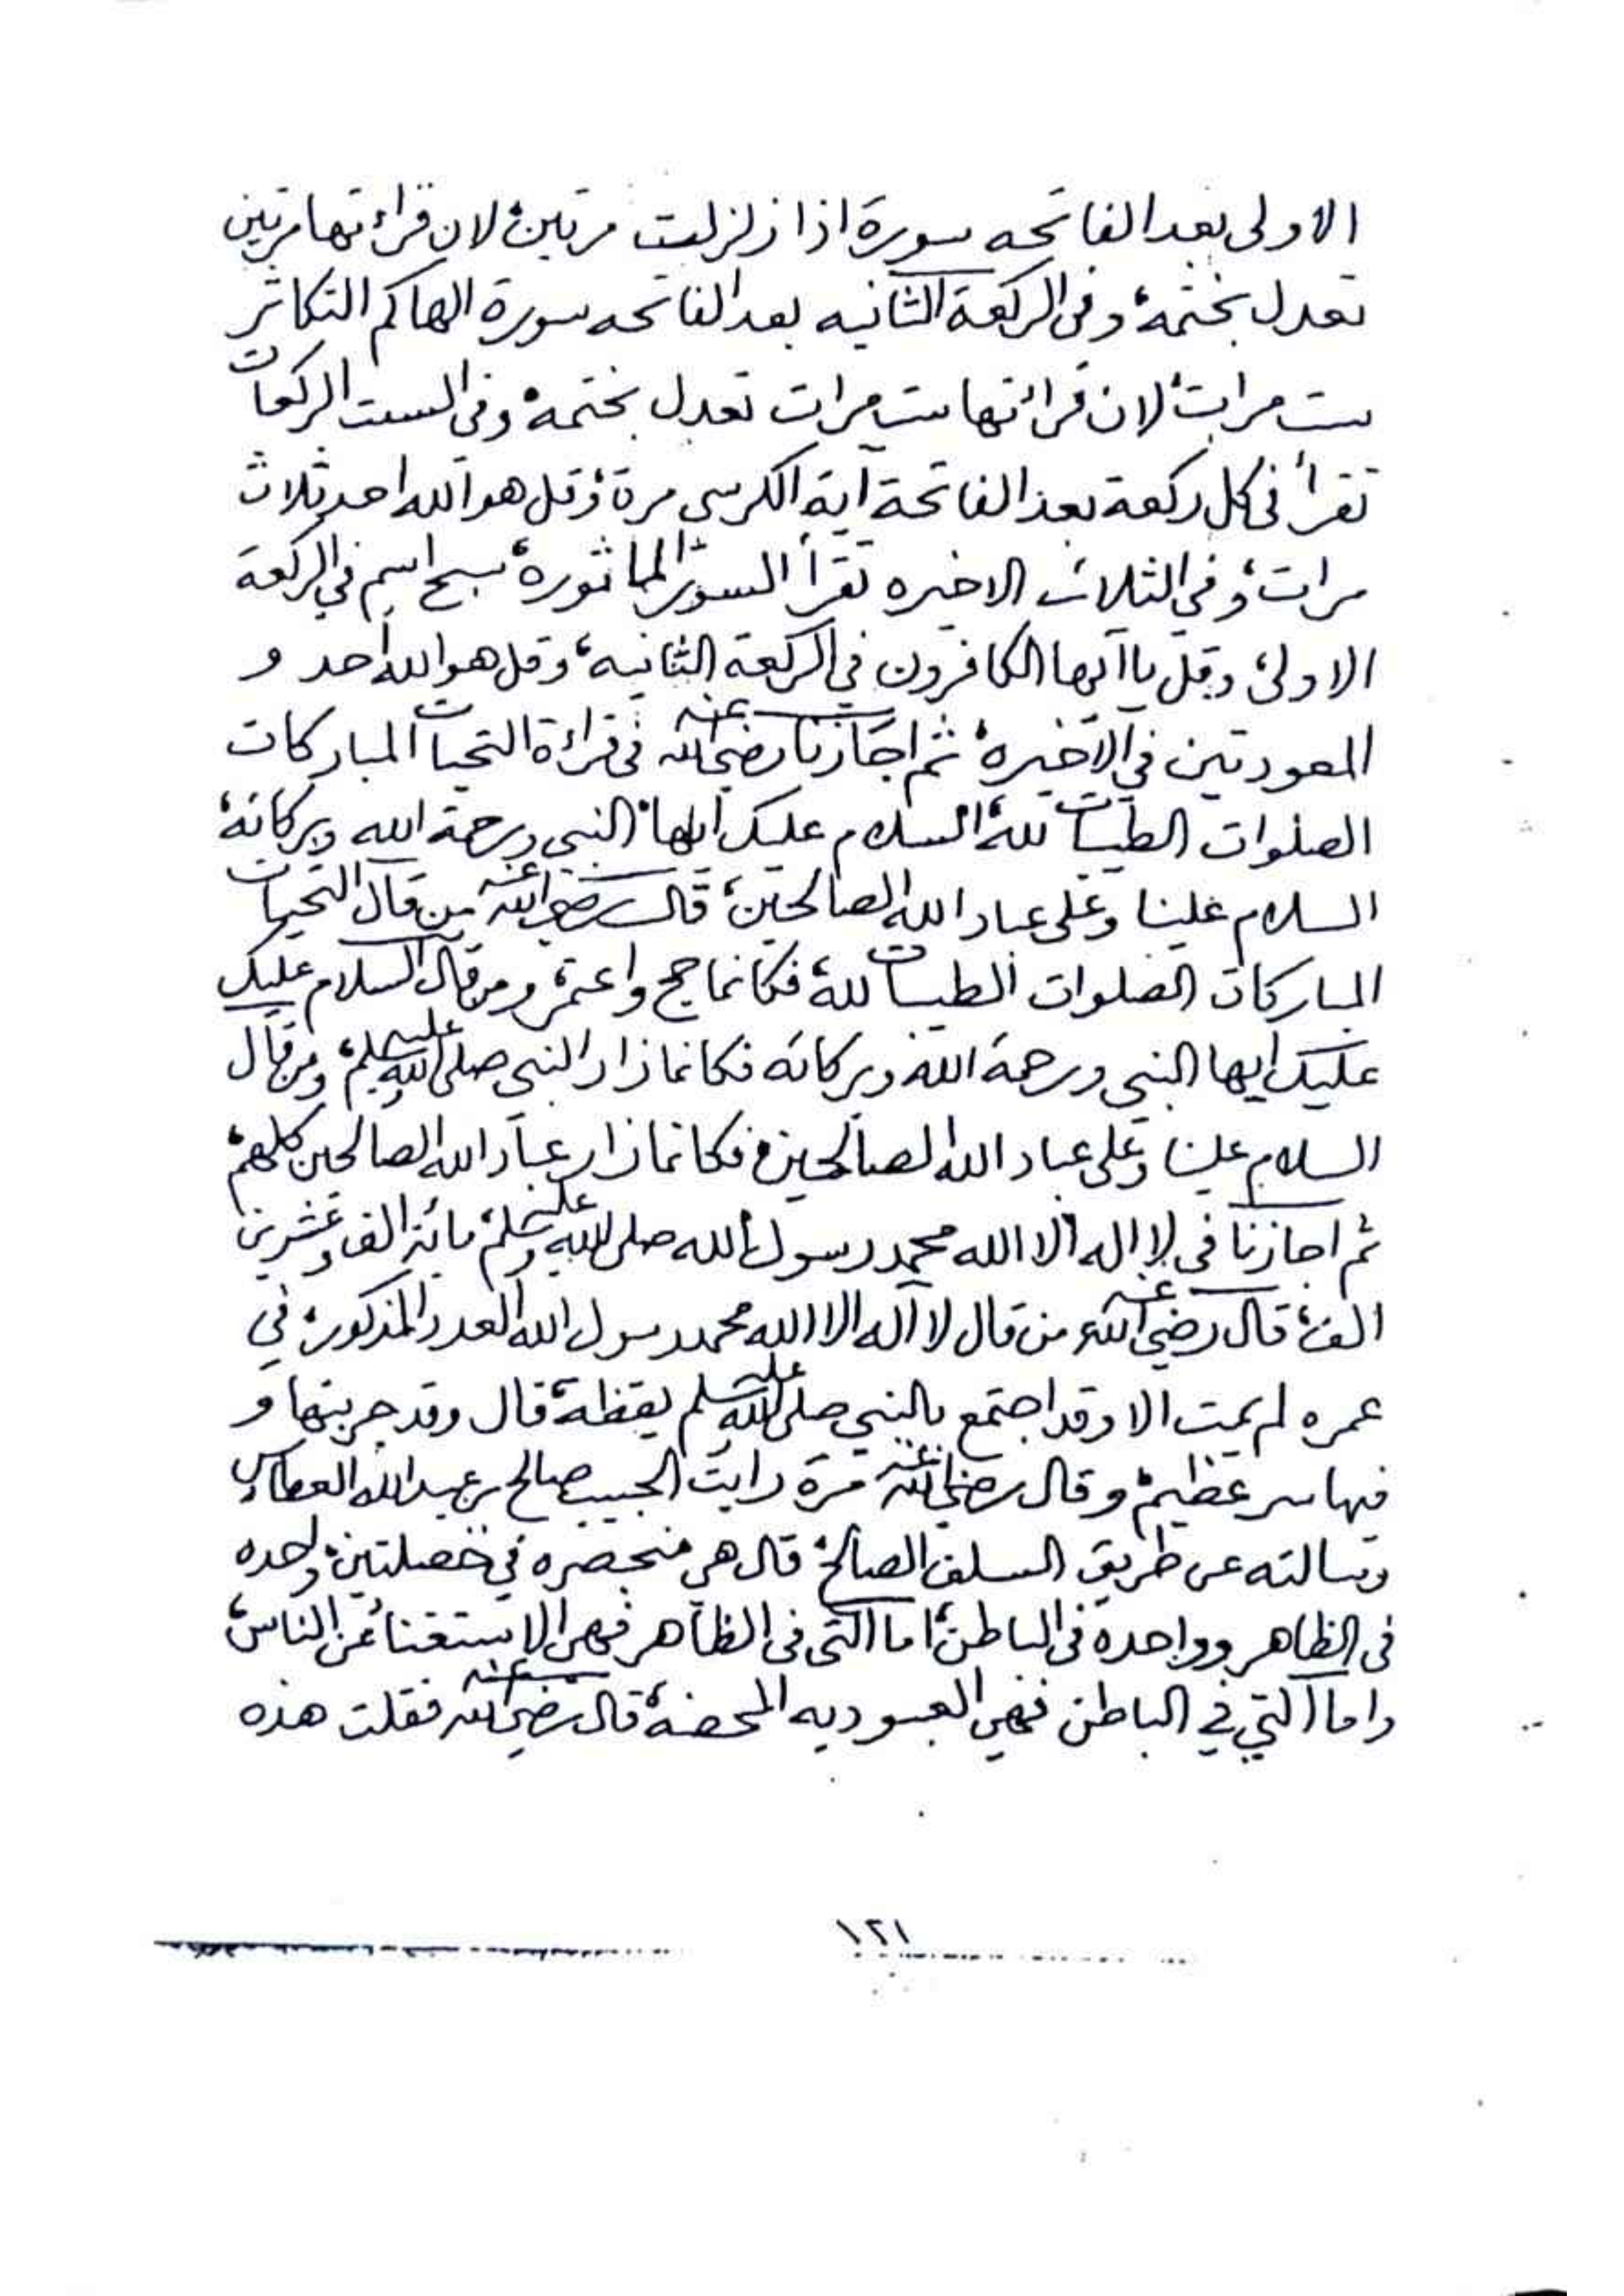 الاولى بعد الفاتحه سورة اذا زلزلت مرتين، لان قرائتها مرتين
تعدل بختمة، وفى الركعة الثانيه بعد الفاتحه سورة الهاكم التكاثر
ست مرات، لان قرائتها ست مرات تعدل بختمه، وفى الست الركعات
تقرأ فى كل ركعة بعد الفاتحة آية الكرسي مرة، وقل هو الله احد ثلاث
مرات، وفي الثلاث الاخيره تقرأ السور الماثورة، سبح اسم في الركعة
الاولى، وقل يا أيها الكافرون في الركعة الثانيه، وقل هو الله أحد و
المعوذتين في الاخيرة، ثم اجازنا رضي الله عنه فى قرائة التحيات المباركات
الصلوات الطيبات لله، السلام عليك ايها النبي ورحمة الله وبركاته،
السلام علينا وعلى عباد الله الصالحين، قال رضي الله عنه من قال التحيات
المباركات الصلوات الطيبات لله، فكانما حج واعتمر، ومن قال السلام عليك
عليك ايها النبي ورحمة الله وبركاته فكانما زار النبي صلى الله عليه وسلم، ومن قال
السلام علينا وعلى عباد الله الصالحين، فكانما زار عباد الله الصالحين كلهم،
ثم اجازنا فى لا اله الا الله محمد رسول الله صلى الله عليه وسلم، مائة الف وعشرين
الف، قال رضي الله عنه من قال لا اله الا الله محمد رسول الله العدد المذكور، في
عمره لم يمت الا وقد اجتمع بالنبي صلى الله عليه وسلم يقظة، قال وقد جربتها و
فيها سر عظيم، وقال رضي الله عنه مرة رايت الحبيب صالح بن عبدالله العطاس
وسالته عن طريق السلف الصالح، قال هي منحصره في خصلتين، واحده
فى الظاهر وواحدة فى الباطن، اما التى فى الظاهر فهي الاستغناء عن الناس،
واما التي في الباطن فهي العبوديه المحضة، قال رضي الله عنه فقلت هذه
١٢١